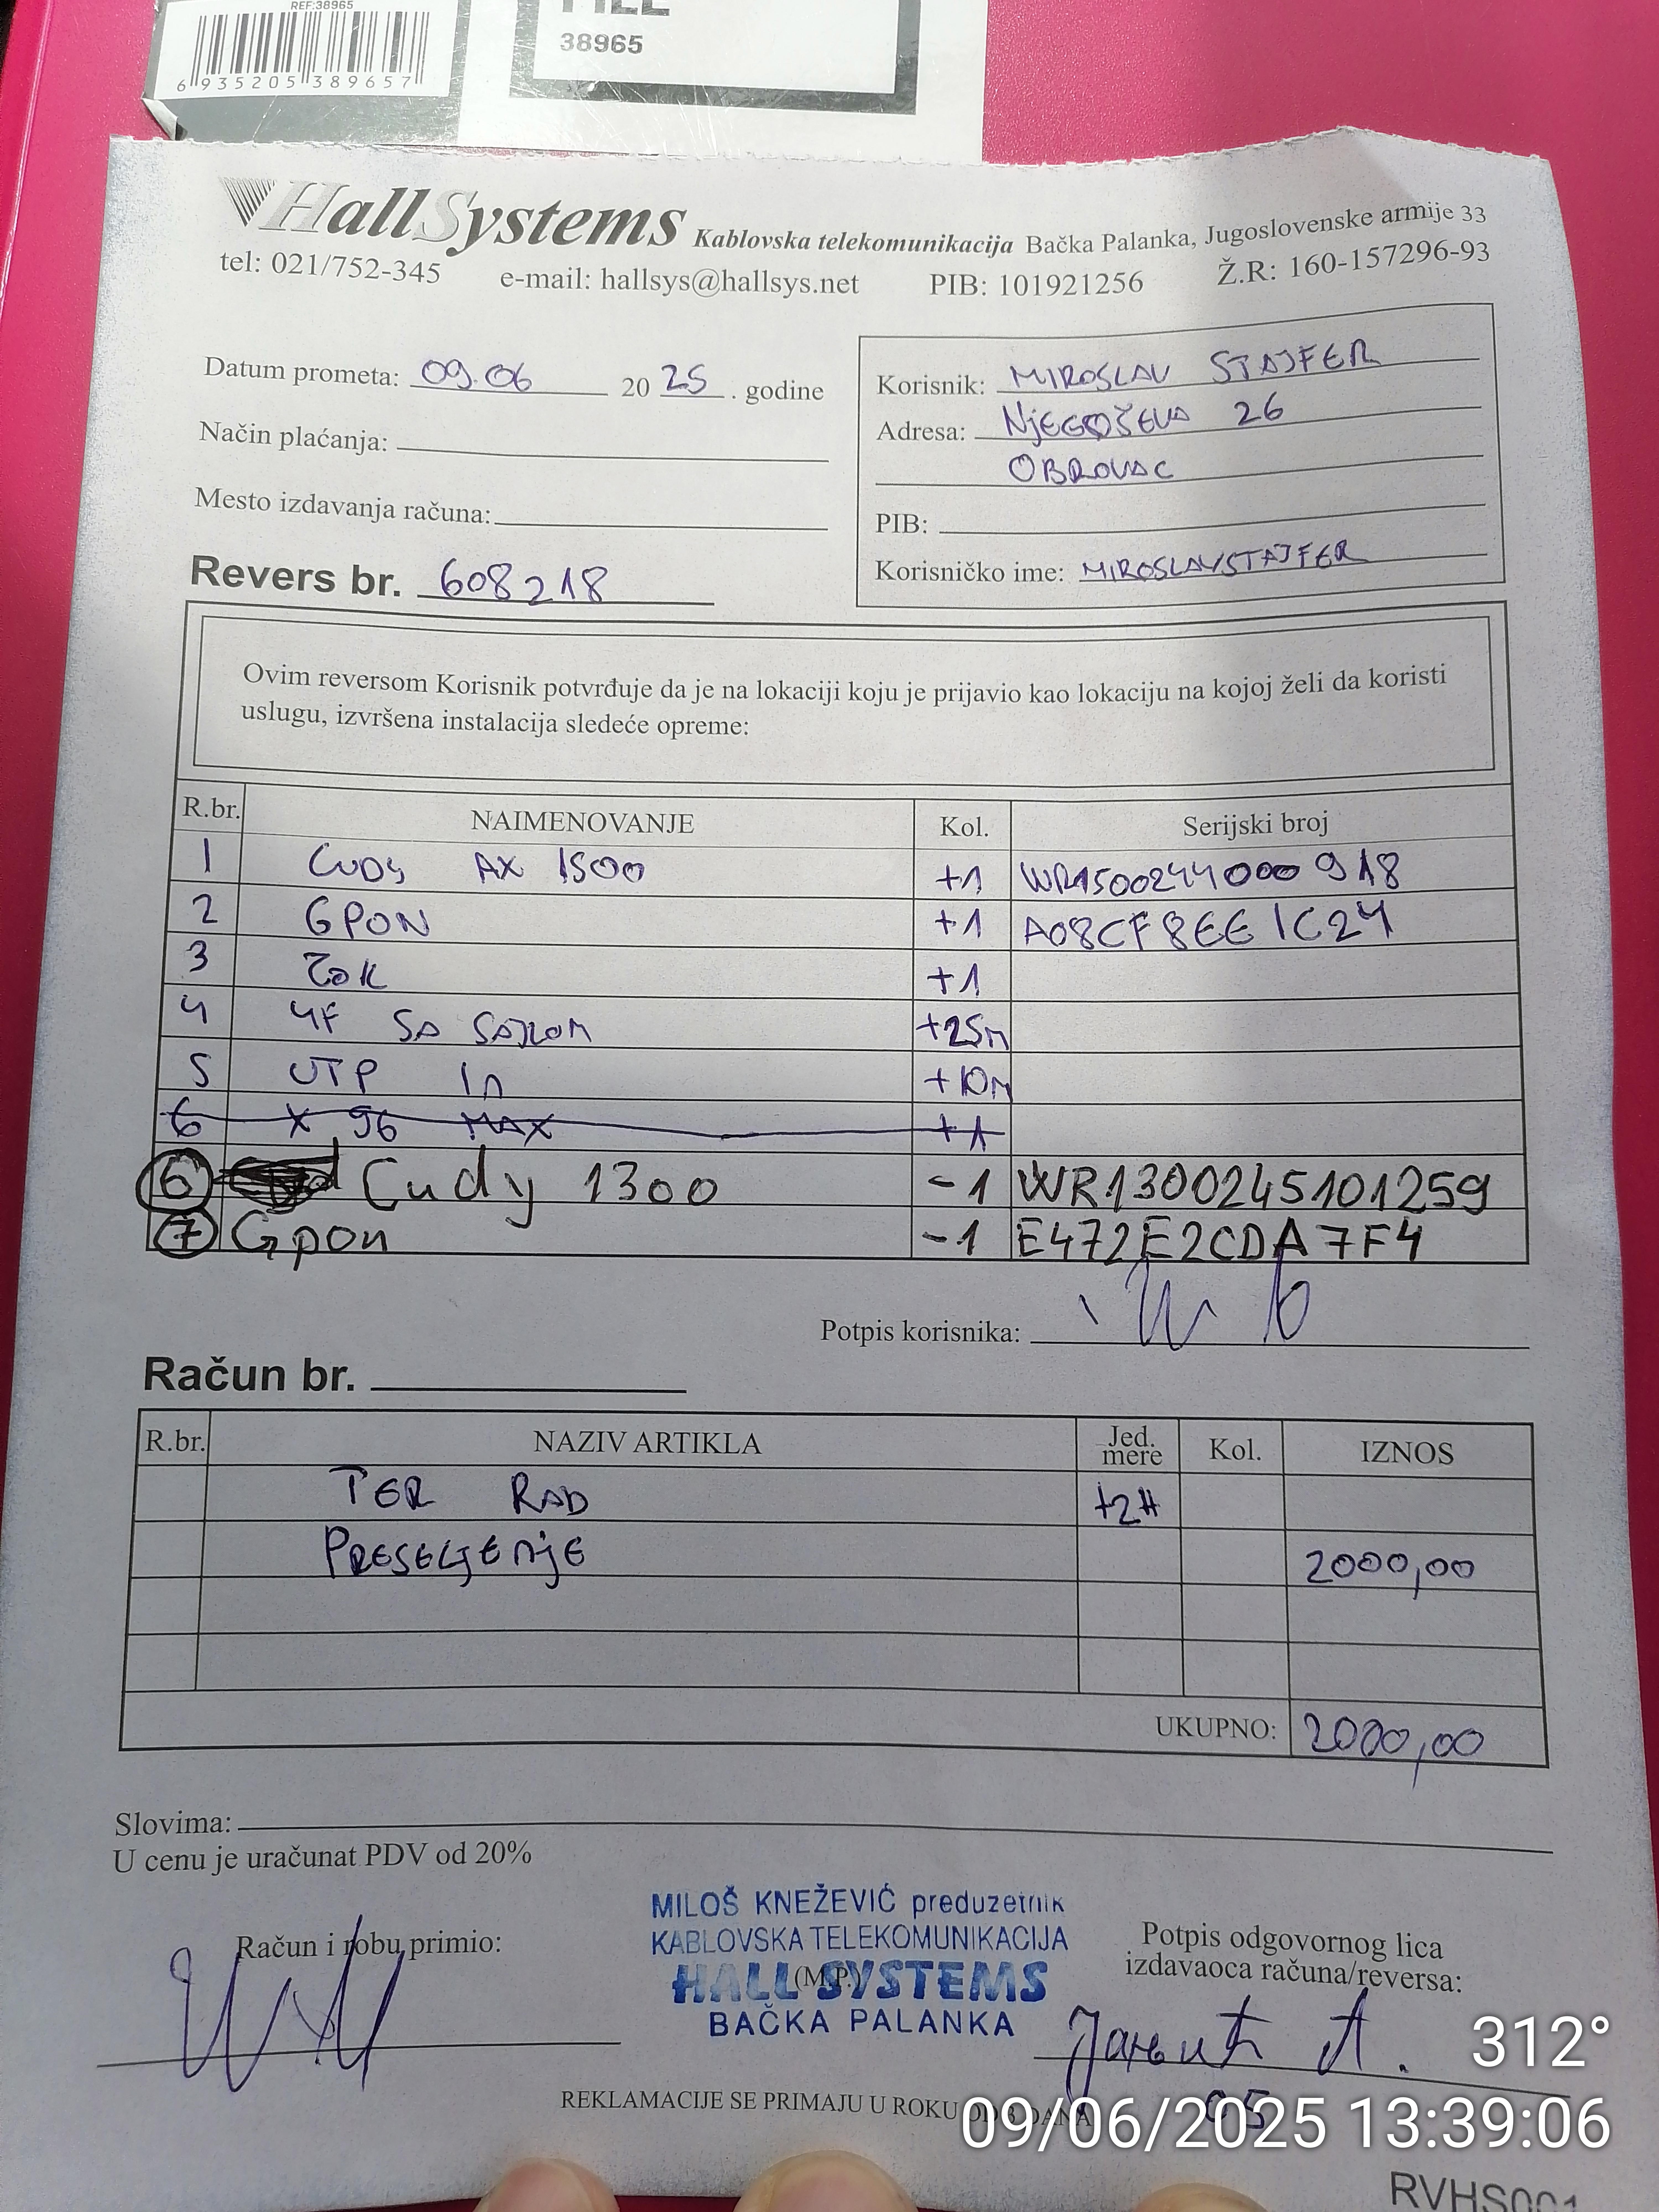 REF:38965
6 935205 389657
38965
HallSystems Kablovska telekomunikacija Bačka Palanka, Jugoslovenske armije 33
tel: 021/752-345 e-mail: hallsys@hallsys.net PIB: 101921256 Ž.R: 160-157296-93
Datum prometa: 09.06 20 25 . godine
Način plaćanja:
Mesto izdavanja računa:
Revers br. 608218
Korisnik: MIROSLAV STAJFER
Adresa: NJEGOŠEVA 26
OBROVAC
PIB:
Korisničko ime: MIROSLAVSTAJFER
Ovim reversom Korisnik potvrđuje da je na lokaciji koju je prijavio kao lokaciju na kojoj želi da koristi
uslugu, izvršena instalacija sledeće opreme:
R.br. NAIMENOVANJE Kol. Serijski broj
1 CUDY AX 1500 +1 WR1500244000918
2 GPON +1 A08CF8EE1C24
3 ZOK +1
4 4F SA SAJLOM +25m
5 UTP In +10m
6 X 96 MAX +1
6 Cudy 1300 -1 WR1300245101259
7 Gpon -1 E472E2CDA7F4
Potpis korisnika:
Račun br.
R.br. NAZIV ARTIKLA Jed. mere Kol. IZNOS
TER RAD +2H
PRESELJENJE 2000,00
UKUPNO: 2000,00
Slovima:
U cenu je uračunat PDV od 20%
MILOŠ KNEŽEVIĆ preduzetnik
KABLOVSKA TELEKOMUNIKACIJA
(M.P.)
HALL SYSTEMS
BAČKA PALANKA
Račun i robu primio:
Potpis odgovornog lica
izdavaoca računa/reversa:
05
REKLAMACIJE SE PRIMAJU U ROKU OD 3 DANA
312°
09/06/2025 13:39:06
RVHS001